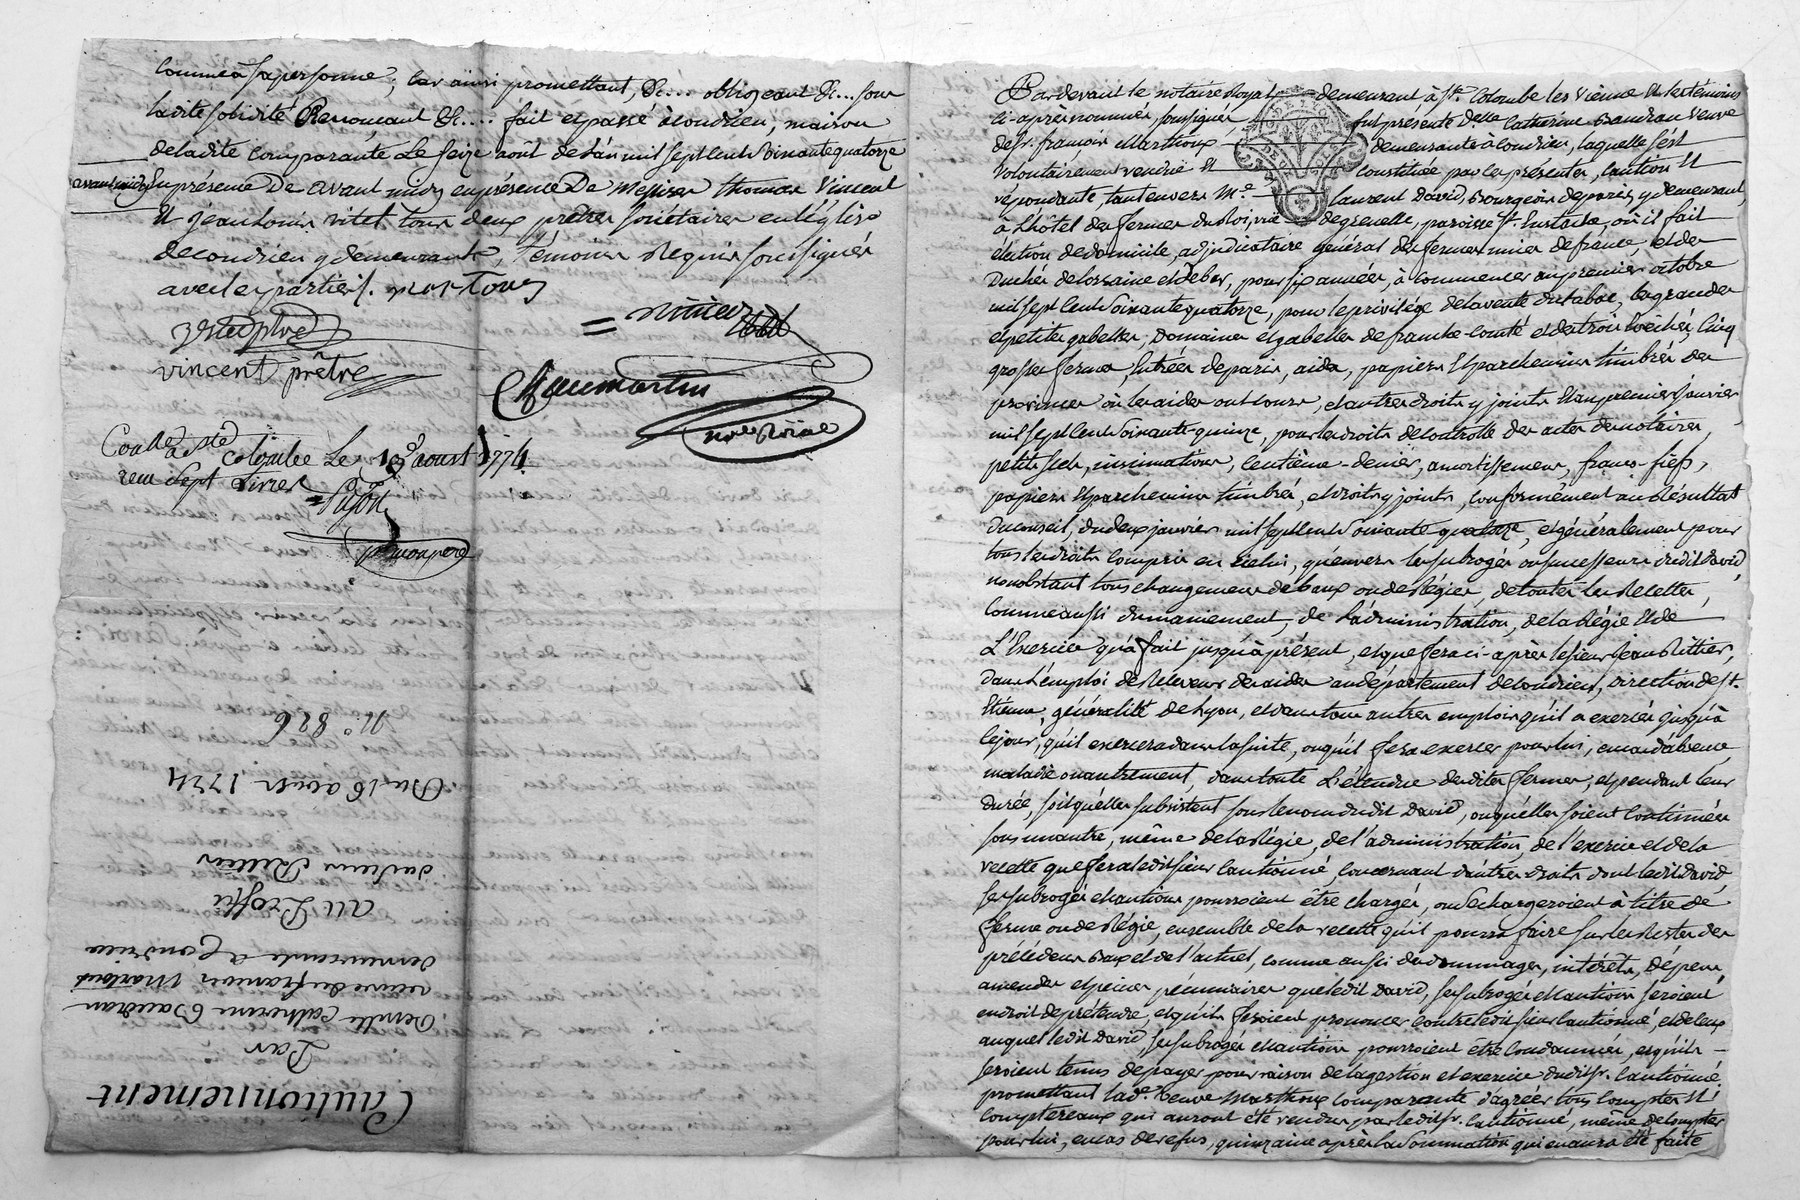 Pardevant le notaire Royal demeurant à Ste. Colombe les vienne et les témoins
ci-après nommés, soussignés, fut présente Delle Catherine Baudran veuve
de Sr. françois Marthoux demeurante à Condrieu, laquelle s'est
volontairement rendüe et constituée par les présentes, caution et
répondante, tant envers Me. laurent David, Bourgeois de paris, y demeurant,
à l'hôtel des fermes du Roi, rüe de grenelle, paroisse St. Eustache, où il fait
élection de domicile, adjudicataire général des fermes unies de france, et des
Duchés de lorraine et de bar, pour six années, à commencer au premier octobre
mil sept cent soixante quatorze, pour le privilège de la vente du tabac, les grandes
et petites gabelles, Domaines et gabelles de franche-comté et des trois Evêchés, cinq
grosses fermes, Entrées de paris, aides, papiers et parchemins timbrés des
provinces où les aides ont cours, et autres droits y joints et au premier janvier
mil sept cent soixante-quinze, pour les droits de controlle des actes de notaires,
petits scels, insinuations, centième-denier, amortissement, francs-fiefs,
papiers et parchemins timbrés, et droits y joints, conformément au Résultat
du conseil, du deux janvier mil sept cent soixante quatorze, et généralement pour
tous les droits compris en icelui, qu'envers les subrogés ou successeurs dudit David,
nonobstant tous changemens de baux ou de Régies, de toutes les Recettes,
comme aussi du maniement, de l'administration, de la Régie et de
L'Exercice qu'a fait jusqu'à présent, et que fera ci-après le sieur Jean Rittier,
dans l'emploi de Receveur des aides au département de Condrieu, Direction de St.
Etienne, généralité de Lyon, et dans tous autres emplois qu'il a exercés jusqu'à
ce jour, qu'il exercera dans la suite, ou qu'il fera exercer pour lui, en cas d'absence,
maladie ou autrement, dans toute L'étendue desdites fermes, et pendant leur
durée, soit qu'elles subsistent sous le nom dudit David, ou qu'elles soient continuées
sous un autre, même de la Régie, de l'administration, de l'exercice et de la
recette que fera ledit sieur cautionné, concernant d'autres droits dont ledit David,
ses subrogés et cautions pourroient être chargés, ou se chargeroient à titre de
ferme ou de Régie, ensemble de la recette qu'il pourra faire sur les Restes des
précédens Baux et de l'actuel, comme aussi des dommages, intérêts, dépens,
amendes et peines pécuniaires que ledit David, ses subrogés et cautions seroient
en droit de prétendre, et qu'ils feroient prononcer contre ledit sieur cautionné, et de ceux
auxquels ledit David, ses subrogés et cautions pourroient être condamnés, et qu'ils
seroient tenus de payer pour raison de la gestion et exercice dudit Sr. cautionné.
promettant lade. veuve Marthoux comparante d'agréer tous comptes et
comptereaux qui auront été rendus par ledit Sr. cautionné, même de compter
pour lui, en cas de refus, quinzaine après la sommation qui en aura été faite
comme à sa personne; car ainsi promettant, &c... obligeant &c... sous
ladite solidité Renonçant &c.... fait et passé à Condrieu, maison
de ladite comparante Le seize août de l'an mil sept cent soixante quatorze
avant midy
en présence De avant midy en présence De Messires thomas Vincent
et jean Louis vitet tous deux prêtres sociétaires en l'église
de condrieu y demeurants, Témoins Requis soussignés
avec les parties.
vincent prêtre
Chaumartin
nore Roial
Conlé à Ste Colombe Le 19 aoust 1774
reçu sept livres
Cautionnement
Par
Demlle Catherine Baudran
veuve du sr françois Martoux
demeurante à Condrieu
au Proffit
du sieur Rittier
Du 16 aoust 1774
N.° 826